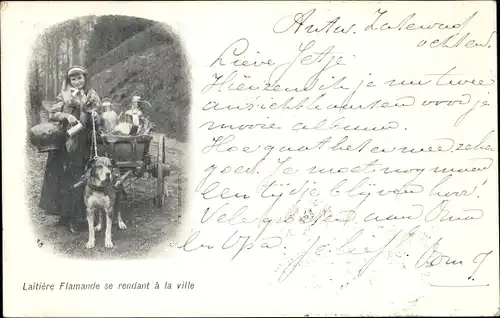 Antw. Zaterdag
ochtend.
Lieve Jetje
Hierzend ik je nu twee
ansichtkaarten voor je
mooie album.
Hoe gaat het er mee, zeker
goed. Je moet nog maar
een tijdje blijven hoor!
Vele groeten aan Oma
en Opa. je liefh.
Laitière Flamande se rendant à la ville